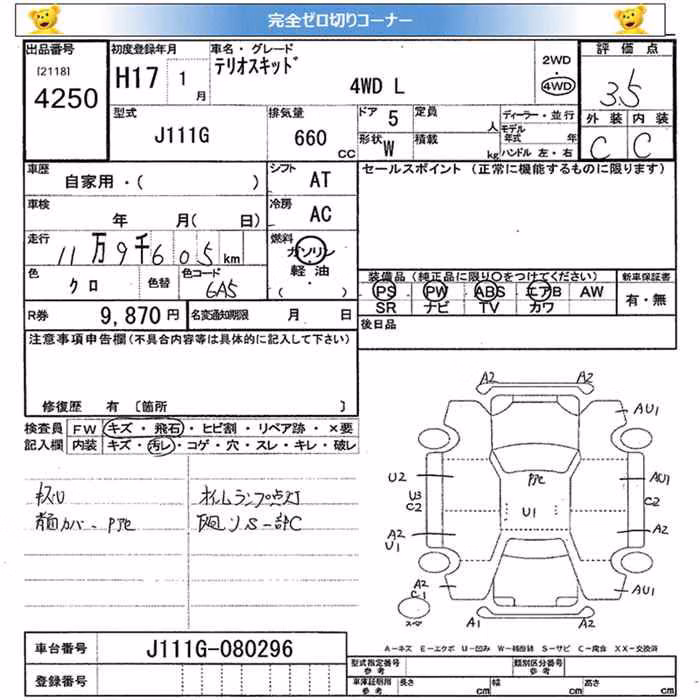 完全ゼロ切りコーナー
出品番号 初度登録年月 車名・グレード 評価点
[2118] 4250 H17 1月 テリオスキッド 4WD L 2WD 4WD 3.5
型式 排気量 ドア 5 定員 人 ディーラー・並行 外装 内装
J111G 660 CC 形状 W 積載 kg モデル年式 年 ハンドル 左・右 C C
車歴 シフト セールスポイント (正常に機能するものに限ります)
自家用・( ) AT
車検 年 月( 日) 冷房 AC
走行 11万9千605km 燃料 ガソリン 軽油 ( )
色 クロ 色替 色コード 6A5
装備品 (純正品に限り○をつけてください) 新車保証書
PS PW ABS エアB AW 有・無
SR ナビ TV カワ
R券 9,870円 名変通知期限 月 日 後日品
注意事項申告欄(不具合内容等は具体的に記入して下さい)
修復歴 有 [箇所 ]
検査員 FW キズ・飛石・ヒビ割・リペア跡・×要
記入欄 内装 キズ・汚レ・コゲ・穴・スレ・キレ・破レ
キズU オイルランプ点灯
カバー
下廻りS一部C
A2 A2
AU1
U2 AU1
U3 C2 U1 C2
A2 A2
U1
A2 C1 AU1
スペア A1 A2
A-キズ E-エクボ U-凹み W-補修跡 S-サビ C-腐食 XX-交換済
車台番号 J111G-080296
型式指定番号 参考 類別区分番号 参考
登録番号 車庫証明用 参考 長さ cm 幅 cm 高さ cm